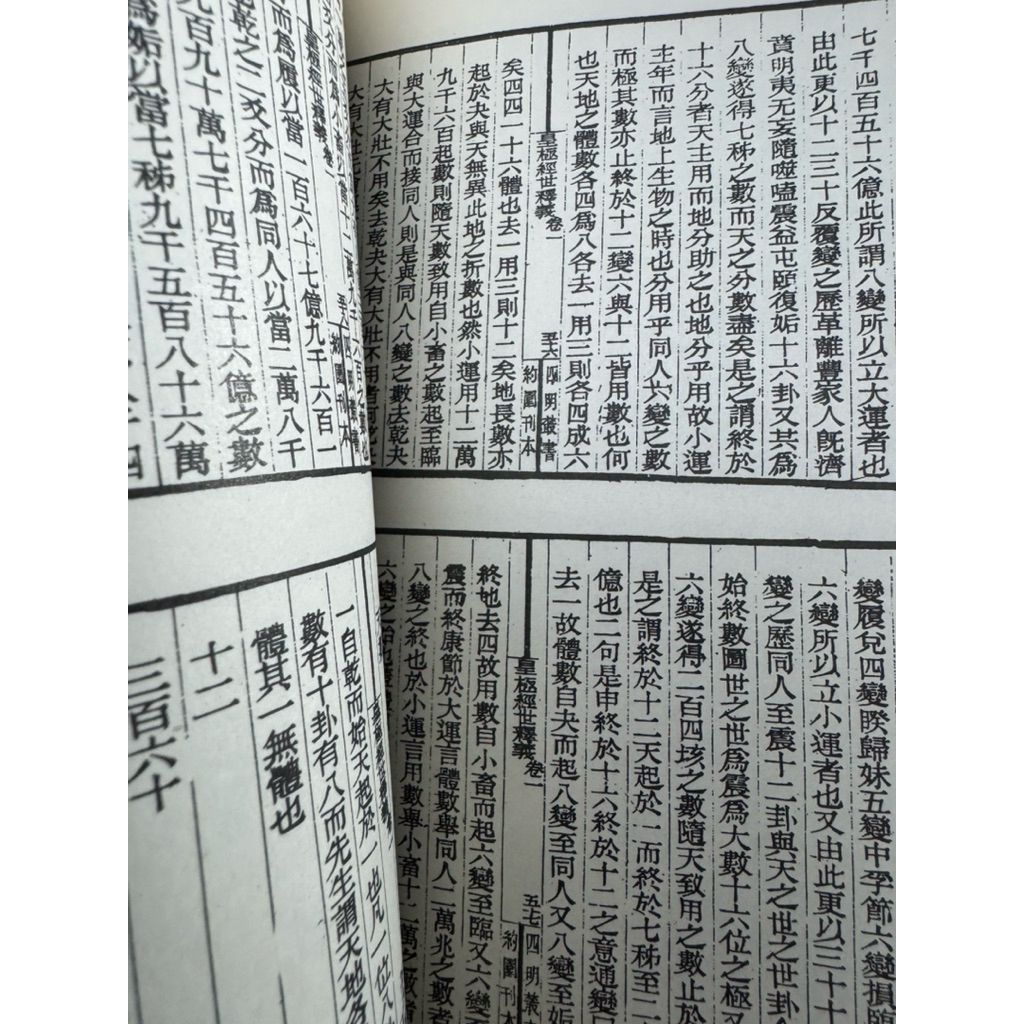 七千四百五十六億此所謂八變所以立大運者也
由此更以十二三十反覆變之歷革離豐家人旣濟
賁明夷无妄隨噬嗑震益屯頤復姤十六卦又其爲
八變遂得七秭之數而天之分數盡矣是之謂終於
十六分者天主用而地分助之也地分乎用故小運
主年而言地上生物之時也分用乎同人六變之數
而極其數亦止終於十二變六與十二皆用數也何
也天地之體數各四爲八各去一用三則各四成六
皇極經世釋義 卷一 至六 四明叢書 約園刊本
矣四四一十六體也去一用三則十二矣地長數亦
起於夬與天無異此地之折數也然小運用十二萬
九千六百起數則隨天數致用自小畜之數起至臨
與大運合而接同人則是與同人八變之數去乾夬
大有大壯不用矣去乾夬大有大壯不用者何也
變履兌四變睽歸妹五變中孚節六變損臨
六變所以立小運者也又由此更以三十
變之歷同人至震十二卦與天之世之世卦
始終數圖世之世爲震爲大數十六位之極
六變遂得二百四垓之數隨天致用之數止於
是之謂終於十二天起於一而終於七秭至二
億也二句是申終於十六終於十二之意通變
去一故體數自夬而起八變至同人又八變至姤
皇極經世釋義 卷一 五七 四明叢 約園刊本
終也去四故用數自小畜而起六變至臨又六變
震而終康節於大運言體數舉同人二萬兆之數
八變之終也於小運言用數舉小畜十二萬之數
六變之始也
爻分而爲
皇極經世釋義 卷一 至六 四明叢書 約園刊本
而爲履以當一百六十七億九千六百一
乾之二爻分而爲同人以當二萬八千
九百九十萬七千四百五十六億之數
爲姤以當七秭九千五百八十六萬
一自乾而始天起於一也凡一位
數有十卦有八而先生謂天地各
體其一無體也
十二
三百六十